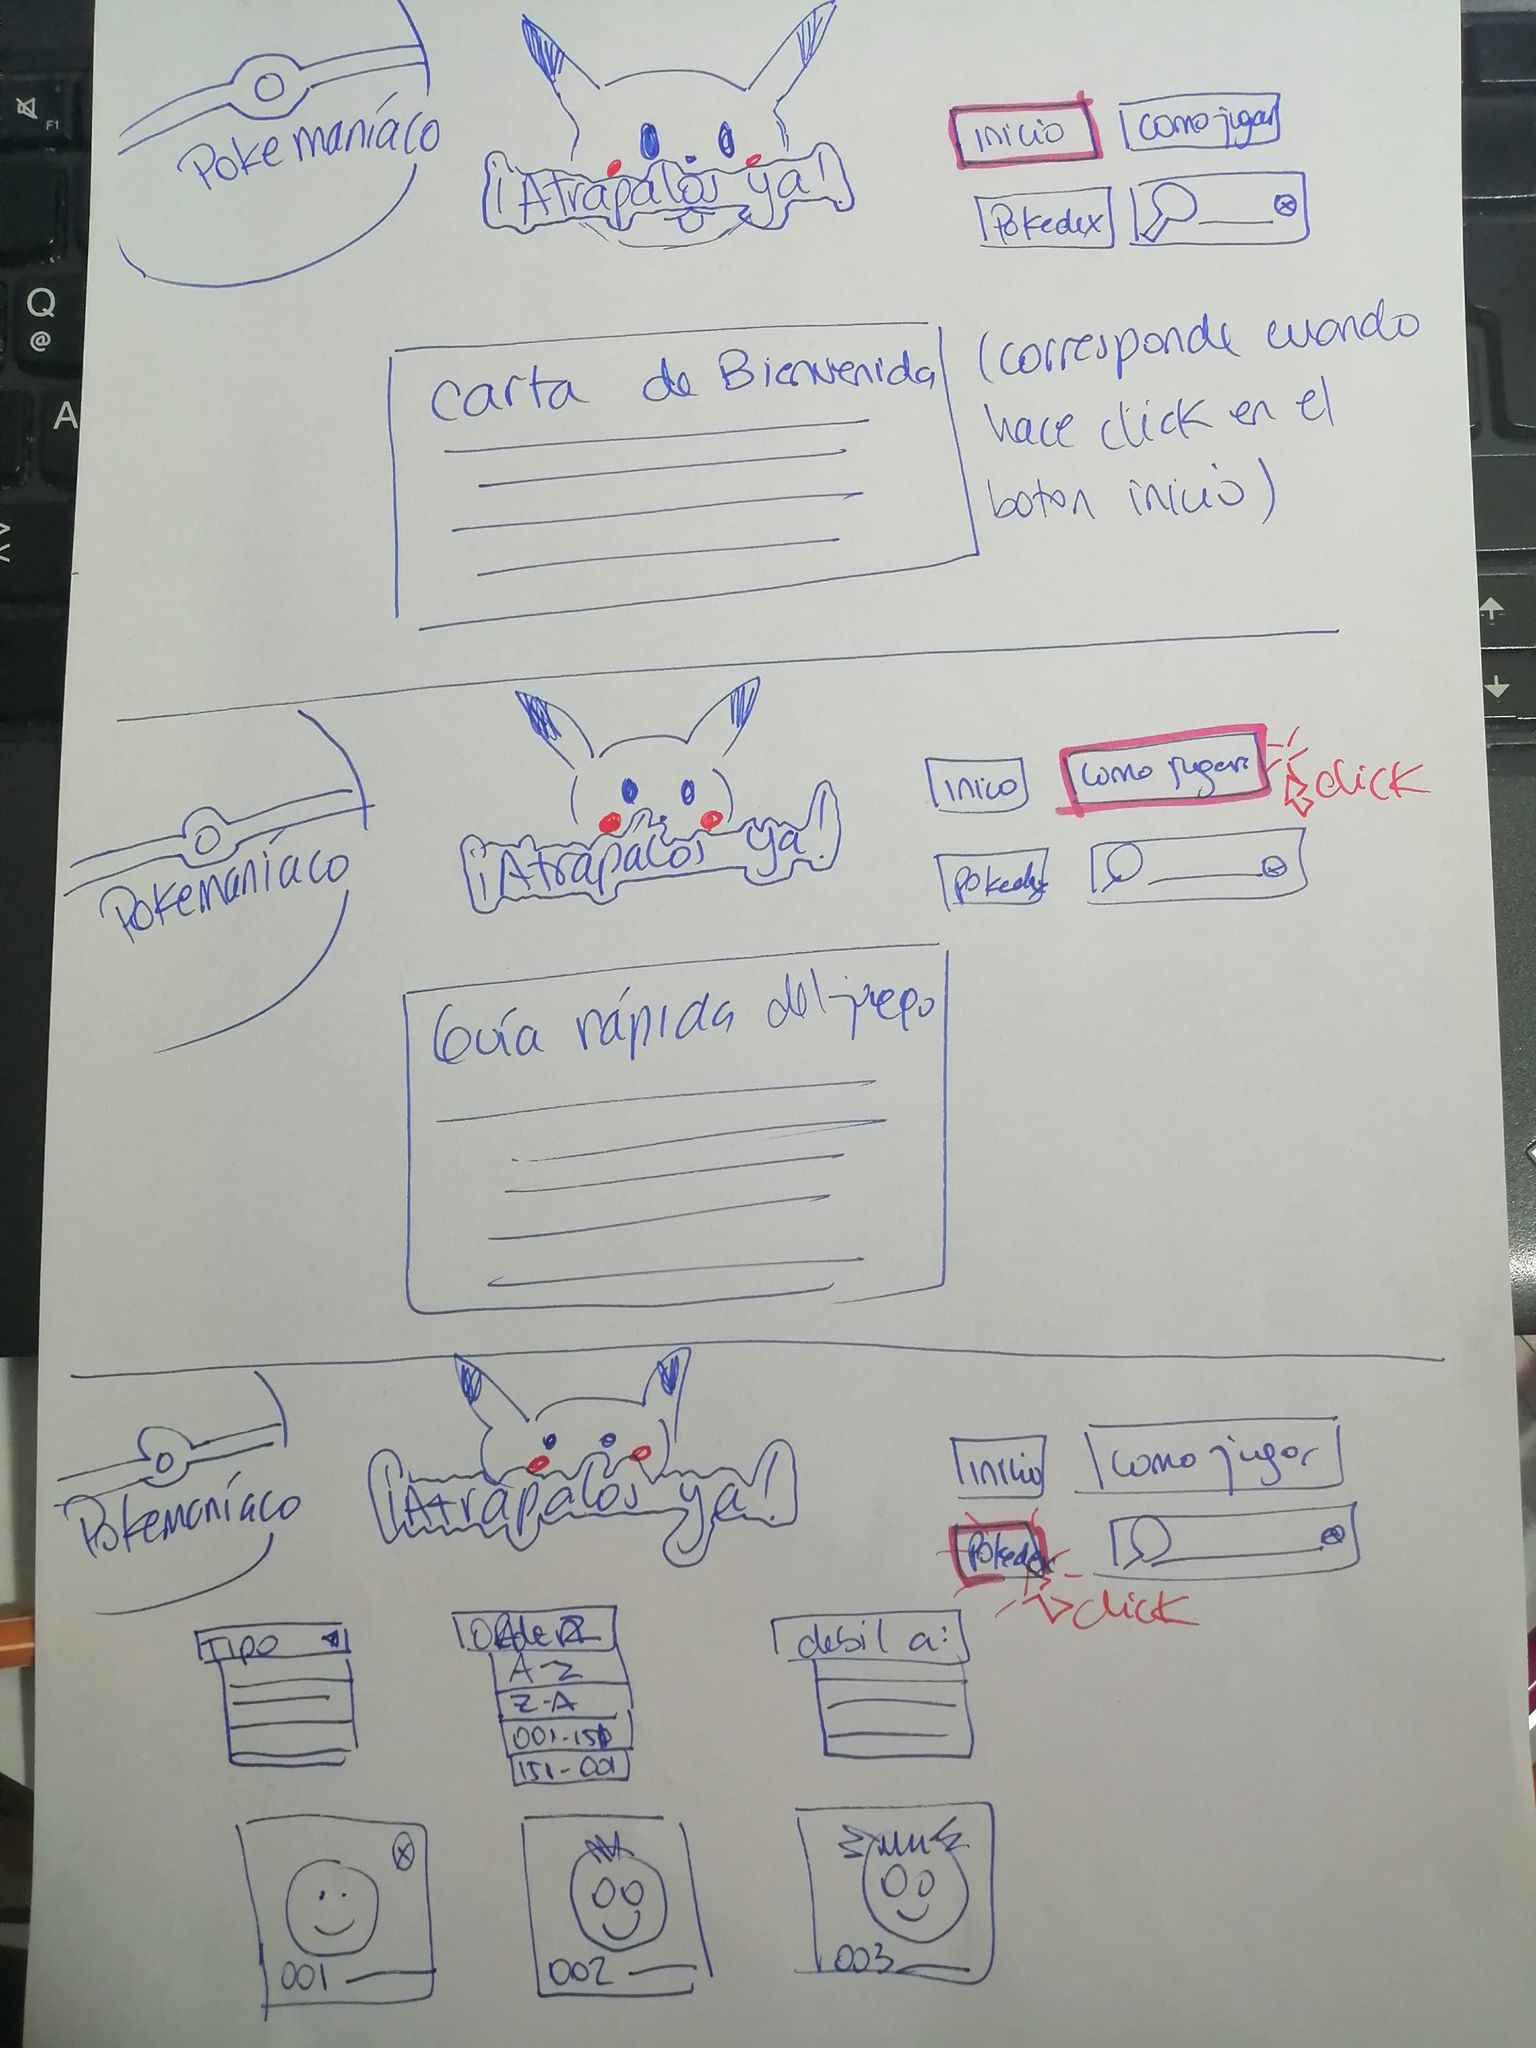 Pokemaníaco
¡Atrapalos ya!
inicio
como jugar
Pokedex
Carta de Bienvenida
(corresponde cuando
hace click en el
boton inicio)
Pokemaníaco
¡Atrapalos ya!
inicio
como jugar
click
Pokedex
Guía rápida del juego
Pokemaníaco
¡Atrapalos ya!
inicio
como jugar
Pokedex
click
TIPO
ORdeR
A-Z
Z-A
001-151
151-001
debil a:
001
002
003
F1
Q
@
A